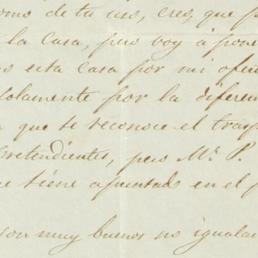 como de tu uso, creo, que p
la Casa, pero voy á pone
os esta casa por mi ofer
solamente por la diferen
que se reconoce el tras
pretendientes, pero Mr. P.
e tiene apuntado en el p
son muy buenos no iguala